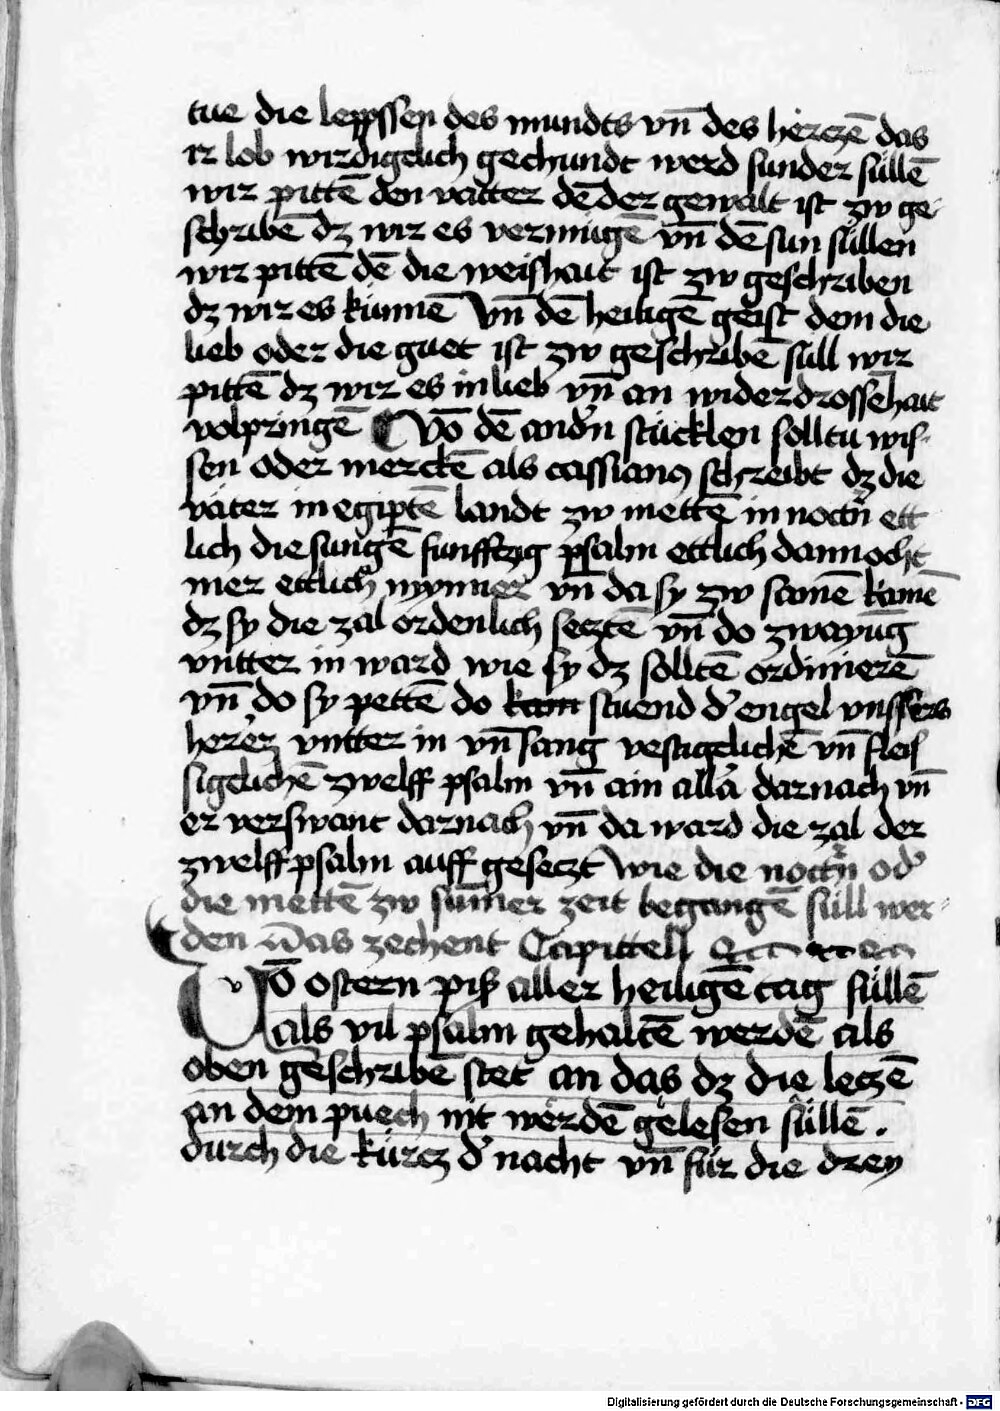 tue die leppssen des mundts vn̄ des herczē das
ir lob wirdigelich gechundt werd sunder süllē
wir pittē den vatter dē der gewalt ist zw ge-
schribē dz wir es vermügē vn̄ dē sun süllen
wir pittē dē die weishait ist zw geschriben
dz wir es künnē vn̄ dē heiligē geist dem die
lieb oder die guet ist zw geschribē süll wir
pittē dz wir es in lieb vn̄ an widerdrossēhait
volpringē Vō dē andn̄ stücklen solltu wis-
sen oder merckē als cassianus schreibt dz die
väter in egiptē landt zw mettē in noctn̄ ett
lich die sungē funfftzig psalm ettlich dannocht
mer ettlich mynner vn̄ da sy zw samē kamē
dz sy die zal ordenlich secztē vn̄ do zwayūg
vntter in ward wie sy dz solltē ordinierē
vn̄ do sy pettē do kam stuend d' engel vnssers
herrē vntter in vn̄ sang vestigelichē vn̄ fleis
sigelichē zwelff psalm vn̄ ain alla darnach vn̄
er verswant darnach vn̄ da ward die zal der
zwelff psalm auff geseczt wie die noctn̄ od'
die mettē zw sūmer zeit begangē süll wer-
den Das zechent Capittell
Vō ostern pis aller heiligē tag süllē
als vil psalm gehaltē werdē als
oben geschribē stet an das dz die leczē
an dem puech nit werdē gelesen süllē .
durch die kürcz d' nacht vn̄ für die drey
Digitalisierung gefördert durch die Deutsche Forschungsgemeinschaft - DFG